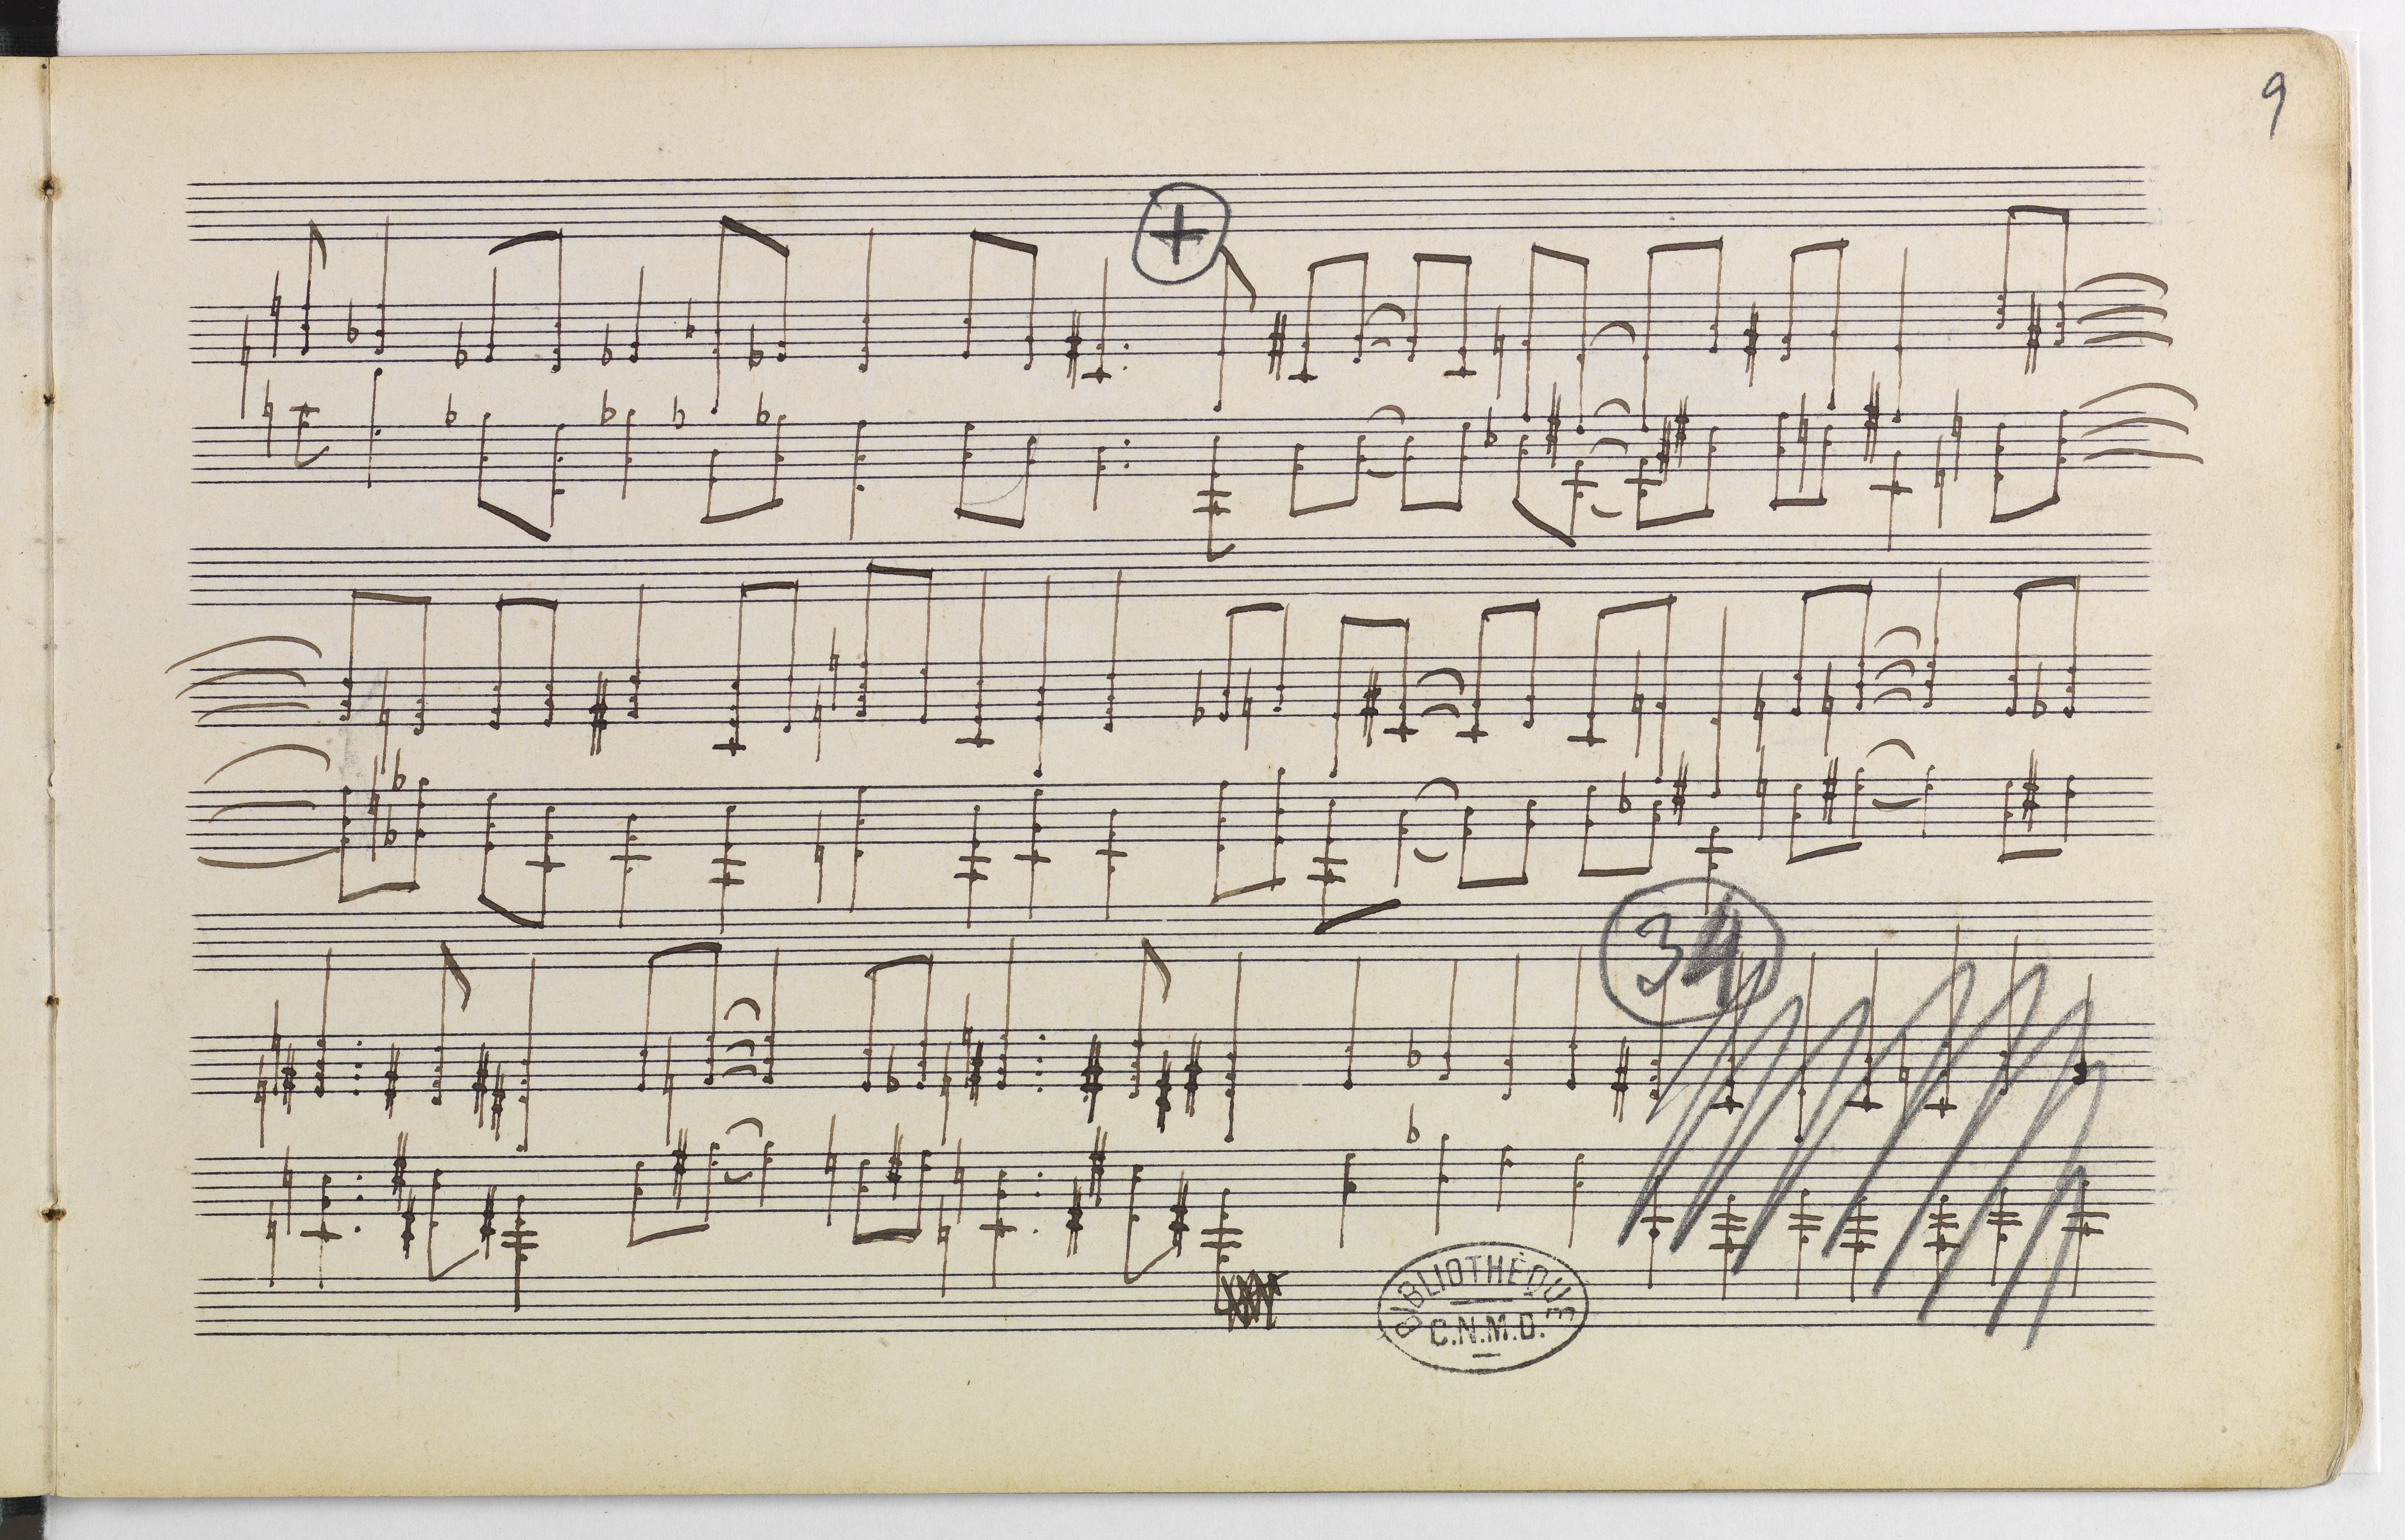 9
+
34
BIBLIOTHÈQUE
C.N.M.D.